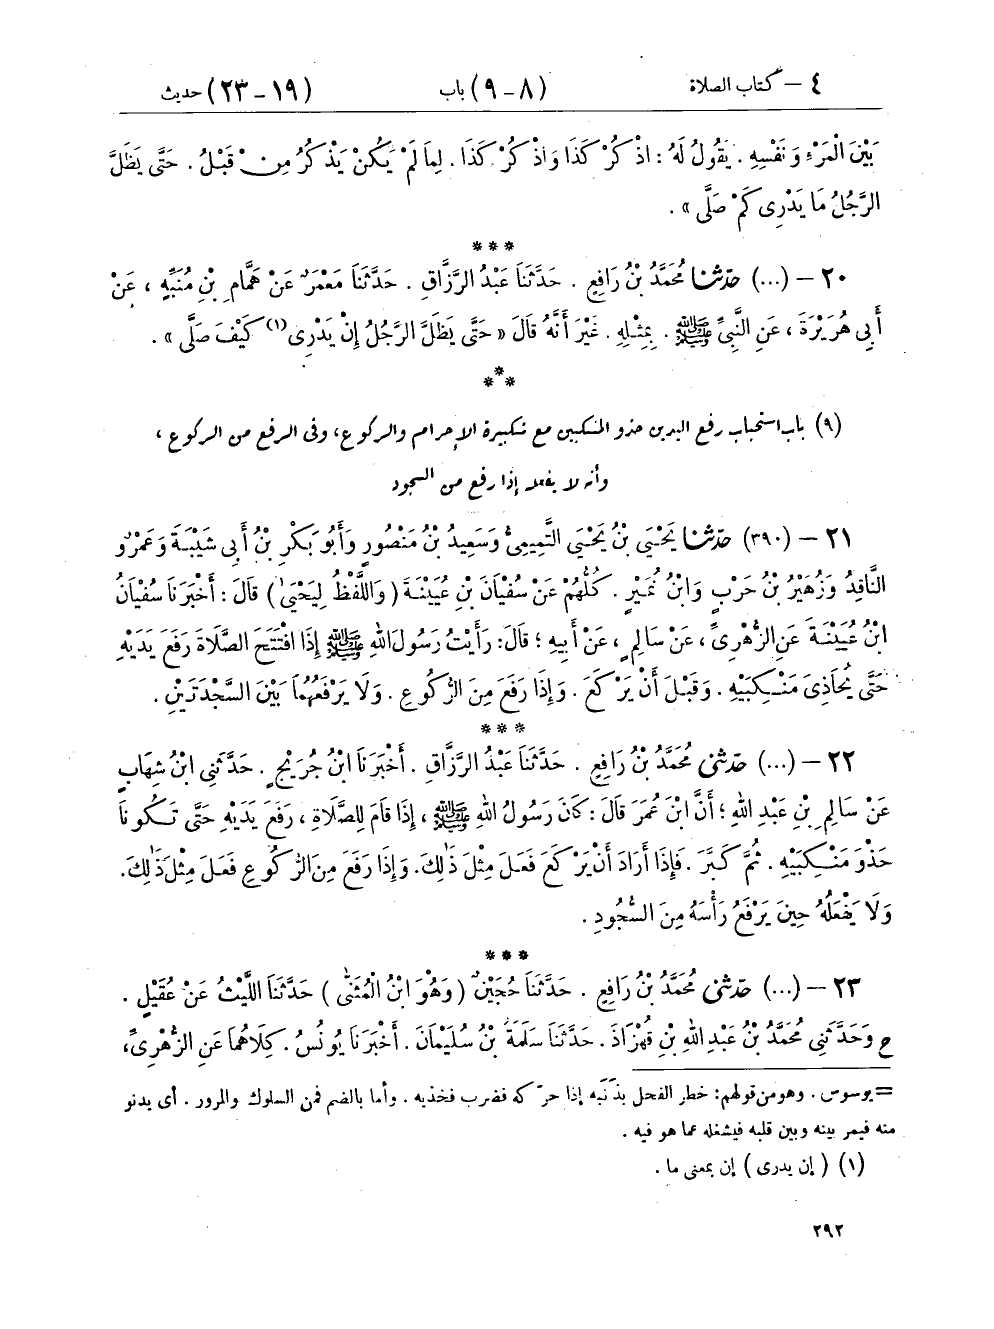 ٤ – كتاب الصلاة (٨ – ٩) باب (١٩ – ٢٣) حديث
بَيْنَ الْمَرْءِ وَنَفْسِهِ . يَقُولُ لَهُ : اذْكُرْ كَذَا وَاذْكُرْ كَذَا . لِمَا لَمْ يَكُنْ يَذْكُرُ مِنْ قَبْلُ . حَتَّى يَظَلَّ
الرَّجُلُ مَا يَدْرِى كَمْ صَلَّى » .
* * *
٢٠ – (...) حدّثنا مُحَمَّدُ بْنُ رَافِعٍ . حَدَّثَنَا عَبْدُ الرَّزَّاقِ . حَدَّثَنَا مَعْمَرٌ عَنْ هَمَّامِ بْنِ مُنَبِّهٍ ، عَنْ
أَبِى هُرَيْرَةَ ، عَنِ النَّبِىِّ ﷺ . بِمِثْلِهِ . غَيْرَ أَنَّهُ قَالَ « حَتَّى يَظَلَّ الرَّجُلُ إِنْ يَدْرِى (١) كَيْفَ صَلَّى » .
* * *
(٩) باب استحباب رفع اليدين حذو المنكبين مع تكبيرة الإحرام والركوع ، وفى الرفع من الركوع ،
وأنه لا يفعله إذا رفع من السجود
٢١ – (٣٩٠) حدّثنا يَحْيَى بْنُ يَحْيَى التَّمِيمِىُّ وَسَعِيدُ بْنُ مَنْصُورٍ وَأَبُو بَكْرِ بْنُ أَبِى شَيْبَةَ وَعَمْرٌو
النَّاقِدُ وَزُهَيْرُ بْنُ حَرْبٍ وَابْنُ نُمَيْرٍ . كُلُّهُمْ عَنْ سُفْيَانَ بْنِ عُيَيْنَةَ ( وَاللَّفْظُ لِيَحْيَىٰ ) قَالَ : أَخْبَرَنَا سُفْيَانُ
ابْنُ عُيَيْنَةَ عَنِ الزُّهْرِىِّ ، عَنْ سَالِمٍ ، عَنْ أَبِيهِ ؛ قَالَ : رَأَيْتُ رَسُولَ اللهِ ﷺ إِذَا افْتَتَحَ الصَّلَاةَ رَفَعَ يَدَيْهِ
حَتَّى يُحَاذِىَ مَنْكِبَيْهِ . وَقَبْلَ أَنْ يَرْكَعَ . وَإِذَا رَفَعَ مِنَ الرُّكُوعِ . وَلَا يَرْفَعُهُمَا بَيْنَ السَّجْدَتَيْنِ .
* * *
٢٢ – (...) حدّثنى مُحَمَّدُ بْنُ رَافِعٍ . حَدَّثَنَا عَبْدُ الرَّزَّاقِ . أَخْبَرَنَا ابْنُ جُرَيْجٍ . حَدَّثَنِى ابْنُ شِهَابٍ
عَنْ سَالِمِ بْنِ عَبْدِ اللهِ ؛ أَنَّ ابْنَ عُمَرَ قَالَ : كَانَ رَسُولُ اللهِ ﷺ ، إِذَا قَامَ لِلصَّلَاةِ ، رَفَعَ يَدَيْهِ حَتَّى تَكُونَا
حَذْوَ مَنْكِبَيْهِ . ثُمَّ كَبَّرَ . فَإِذَا أَرَادَ أَنْ يَرْكَعَ فَعَلَ مِثْلَ ذَٰلِكَ . وَإِذَا رَفَعَ مِنَ الرُّكُوعِ فَعَلَ مِثْلَ ذَٰلِكَ .
وَلَا يَفْعَلُهُ حِينَ يَرْفَعُ رَأْسَهُ مِنَ السُّجُودِ .
* * *
٢٣ – (...) حدّثنى مُحَمَّدُ بْنُ رَافِعٍ . حَدَّثَنَا حُجَيْنٌ ( وَهُوَ ابْنُ الْمُثَنَّىٰ ) حَدَّثَنَا اللَّيْثُ عَنْ عُقَيْلٍ .
ح وَحَدَّثَنِى مُحَمَّدُ بْنُ عَبْدِ اللهِ بْنِ قُهْزَاذَ . حَدَّثَنَا سَلَمَةُ بْنُ سُلَيْمَانَ . أَخْبَرَنَا يُونُسُ . كِلَاهُمَا عَنِ الزُّهْرِىِّ ،
= يوسوس . وهو من قولهم : خطر الفحل بذَنَبه إذا حرّكه فضرب فخذيه . وأما بالضم فمن السلوك والمرور . أى يدنو
منه فيمر بينه وبين قلبه فيشغله عما هو فيه .
(١) ( إن يدرى ) إن بمعنى ما .
٢٩٢